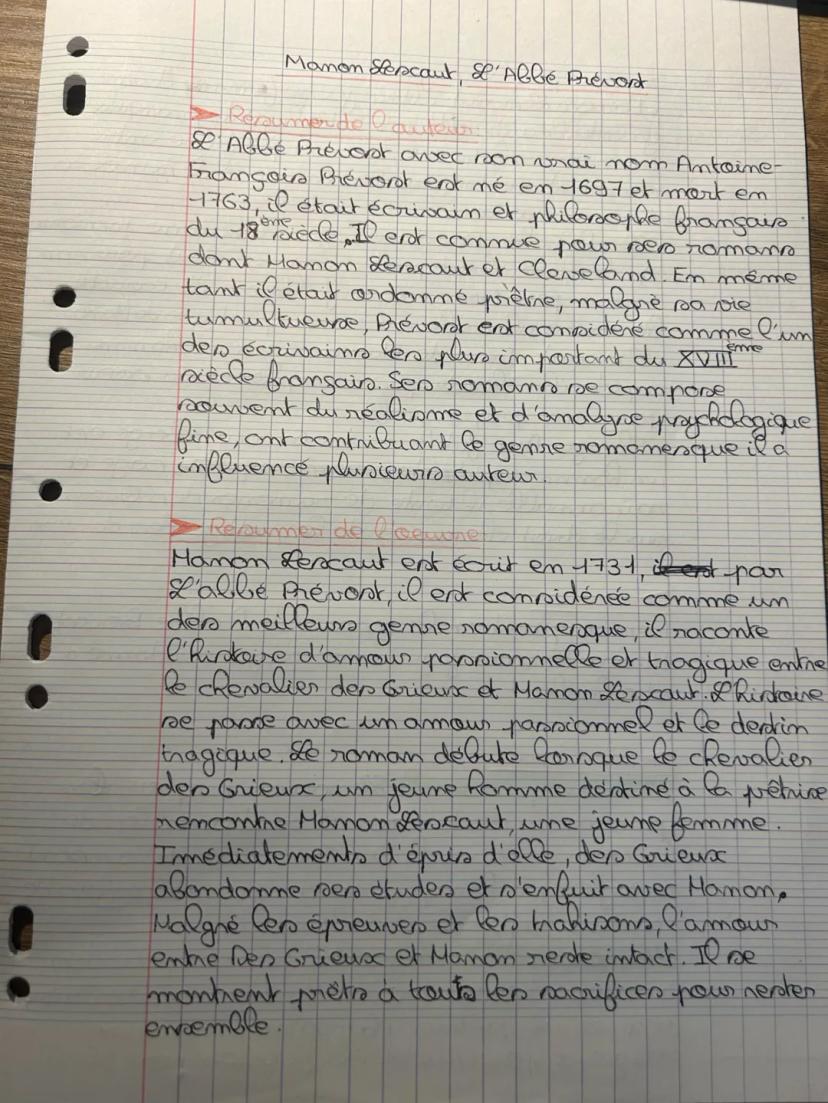 Manon Lescaut, L'Abbé Prévost
➤ Resumer de l'auteur
L'Abbé Prévost avec son vrai nom Antoine-
François Prévost est né en 1697 et mort en
1763, il était écrivain et philosophe français
du 18ème siècle. Il est connue pour ses romans
dont Manon Lescaut et Cleveland. En même
tant il était ordonné prêtre, malgré sa vie
tumultueuse, Prévost est considéré comme l'un
des écrivains les plus important du XVIIIème
siècle français. Ses romans se compose
souvent du réalisme et d'analyse psychologique
fine, ont contribuant le genre romanesque il a
influencé plusieurs auteur.
➤ Resumer de l'oeuvre
Manon Lescaut est écrit en 1731, il est par
L'abbé Prévost, il est considérée comme un
des meilleurs genre romanesque, il raconte
l'histoire d'amour passionnelle et tragique entre
le chevalier des Grieux et Manon Lescaut. L'histoire
se passe avec un amour passionnel et le destin
tragique. Le roman débute lorsque le chevalier
des Grieux, un jeune homme déstiné à la prêtrise
rencontre Manon Lescaut, une jeune femme.
Immédiatements d'épris d'elle, des Grieux
abandonne ses études et s'enfuit avec Manon.
Malgré les épreuves et les trahisons, l'amour
entre Des Grieux et Manon reste intact. Il se
montrent prêts à touts les sacrifices pour rester
ensemble.